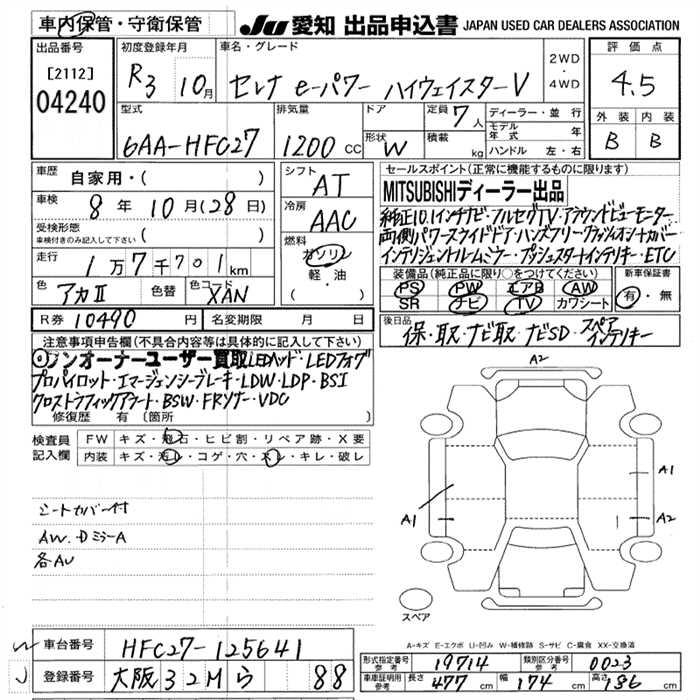 車内保管・守衛保管 JU 愛知 出品申込書 JAPAN USED CAR DEALERS ASSOCIATION
出品番号 初度登録年月 車名・グレード 2WD・4WD 評価点
[2112] 04240 R3 10月 セレナ e-パワー ハイウェイスターV 4.5
型式 排気量 ドア 定員 7人 ディーラー・並行 外装 内装
6AA-HFC27 1200 CC 形状 W 積載 kg モデル年式 年 B B
ハンドル 左・右
車歴 自家用・( ) シフト AT セールスポイント(正常に機能するものに限ります)
車検 8年 10月(28日) 冷房 AAC MITSUBISHIディーラー出品
受検形態 車検付きのみ記入して下さい ( ) 燃料 ガソリン 軽・油 ( )
純正10.1インチナビ・フルセグTV・アラウンドビューモニター
両側パワースライドドア・ハンズフリー
インテリジェントルームミラー・プッシュスタートインテリキー・ETC
走行 1万7千701km
色 アカII 色替 色コード XAN
装備品(純正品に限り○をつけてください) 新車保証書
PS PW エアB AW 有・無
SR ナビ TV カワシート
R券 10490 円 名変期限 月 日
後日品 保・取・ナビ取・ナビSD・スペアインテリキー
注意事項申告欄(不具合内容等は具体的に記入して下さい)
ワンオーナーユーザー買取 LEDヘッド・LEDフォグ
プロパイロット・エマージェンシーブレーキ・LDW・LDP・BSI
クロストラフィックアラート・BSW・FRソナー・VDC
修復歴 有 〔箇所
検査員記入欄 FW キズ・飛石・ヒビ割・リペア跡・X要
内装 キズ・汚レ・コゲ・穴・スレ・キレ・破レ
シートカバー付
AW.DミラーA
各AU
A2
A1
A1
A2
スペア
A-キズ E-エクボ U-凹み W-補修跡 S-サビ C-腐食 XX-交換済
W 車台番号 HFC27-125641
J 登録番号 大阪 32M ら 88
形式指定番号 参考 19714 類別区分番号 参考 0023
車庫証明用 参考 長さ 477 cm 幅 174 cm 高さ 186 cm